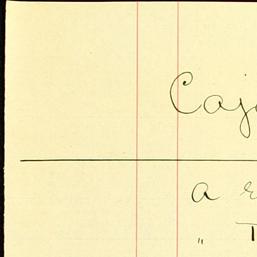 Caj
a r
" T